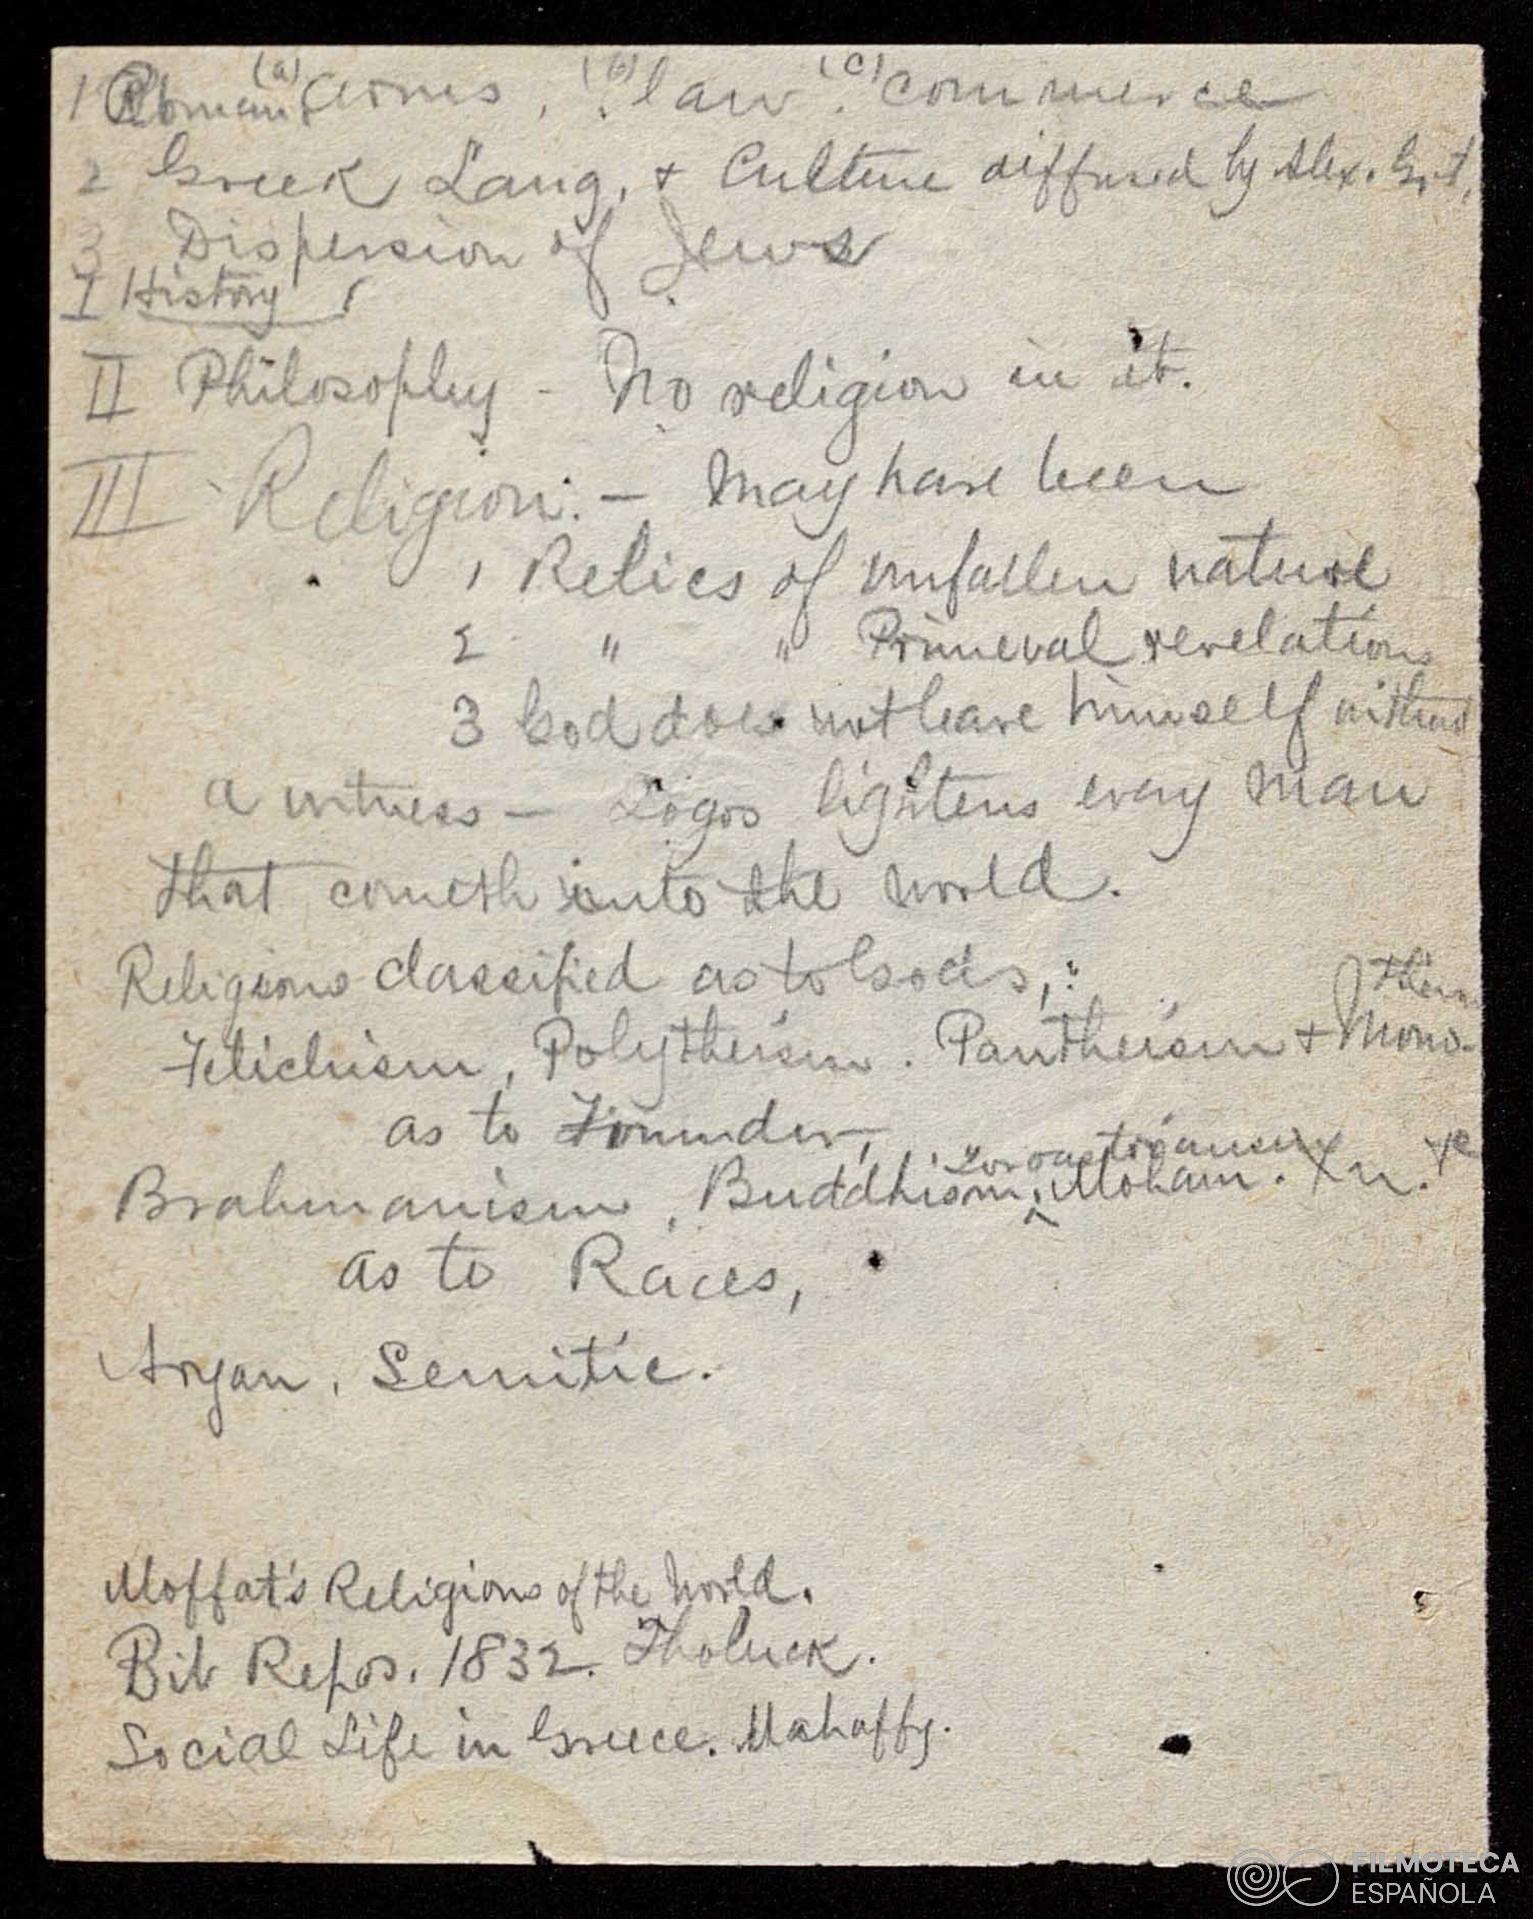 1 Roman (a) arms, (b) law. (c) commerce
2 Greek Lang. + Culture diffused by Alex. Grt.
3 Dispersion of Jews
I History
II Philosophy - No religion in it.
III Religion. - May have been
1 Relics of unfallen nature
2 " " Primeval revelations
3 God does not leave himself without
a witness - Logos lightens every man
that cometh into the world.
Religions classified as to Gods, :
Fetichism, Polytheism. Pantheism + Mono-
theism
as to Founder,
Zoroastrianism
Brahmanism, Buddhism, ^ Moham. Xn.
as to Races,
Aryan, Semitic.
Moffat's Religions of the World.
Bib Repos. 1832. Tholuck.
Social Life in Greece. Mahaffy.
FILMOTECA
ESPAÑOLA